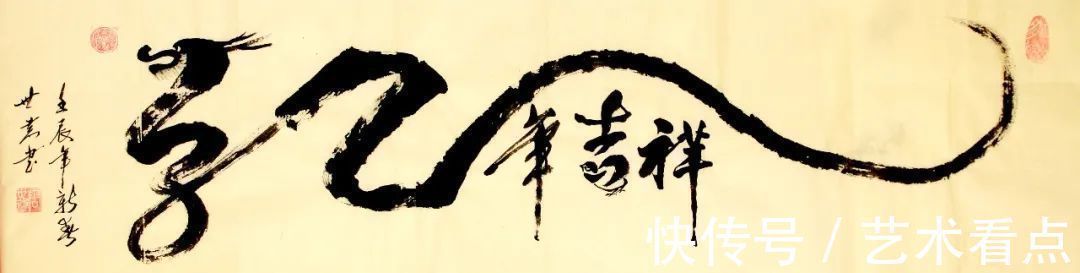 龍
年吉祥
壬辰年新春
世 书
快传号 / 艺术看点